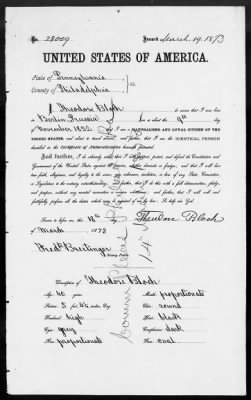 No. 28009 Issued March 19, 1873
UNITED STATES OF AMERICA.
State of Pennsylvania
County of Philadelphia } ss.
I Theodore Bloch do swear that I was born
in Berlin, Prussia on the 9th day
November 1832 that I am a NATURALIZED AND LOYAL CITIZEN OF THE
UNITED STATES, and about to travel abroad; and further, that I am the IDENTICAL PERSON
described in the Certificate of Naturalization
And further, I do solemnly swear that I will support, protect, and defend the Constitution and
Government of the United States against all enemies, whether domestic or foreign; and that I will bear
true faith, allegiance, and loyalty to the same, any ordinance, resolution, or law of any State, Convention,
or Legislature to the contrary notwithstanding; and further, that I do this with a full determination, pledge,
and purpose, without any mental reservation or evasion whatsoever; and further, that I will well and
faithfully perform all the duties which may be required of me by law: So help me God.
Sworn to before me, this 18th
of March 1873 Theodore Bloch
Fredk Breitinger
Notary Public
Description of Theodore Bloch
Age: 40 years Mouth: proportionate
Stature: 5 feet inches, Eng. Chin: round
Forehead: high Hair: black
Eyes: grey Complexion: dark
Nose: proportionate Face: oval